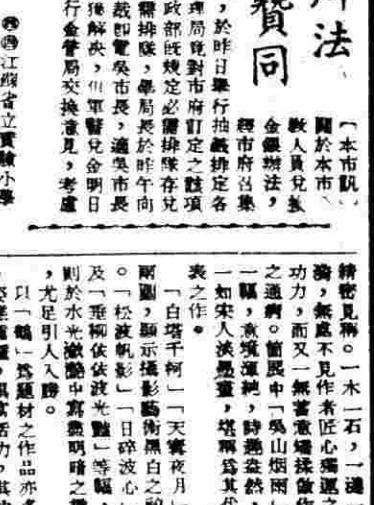 辦法
贊同
〔本市訊〕
關於本市
教人員兌換
金銀辦法，
經市府召集
，於昨日舉行抽籤排定各
理局竟對市府訂定之該項
政部既規定必需排隊存兌
需排隊，畢局長於昨午向
裁即電吳市長，適吳市長
獲解決，但軍警兌金明日
行金管局交換意見，考慮
江蘇省立實驗小學
精密見稱。一木一石，一
漪，無處不見作者匠心獨運之
功力，而又一無蓄意矯揉做作
之通病。箇展中「吳山烟雨」
一幅，意境渾純，詩趣盎然，
一如宋人淡墨畫，堪稱爲其代
表之作。
「白塔千柯」「天寶夜月」
兩劃，顯示攝影藝術黑白之
。「松波帆影」「日碎波心」
及「垂柳依依波光豔」等幅，
則於水光瀲灧中寫盡明暗之
，尤足引人入勝。
以「鶴」爲題材之作品亦